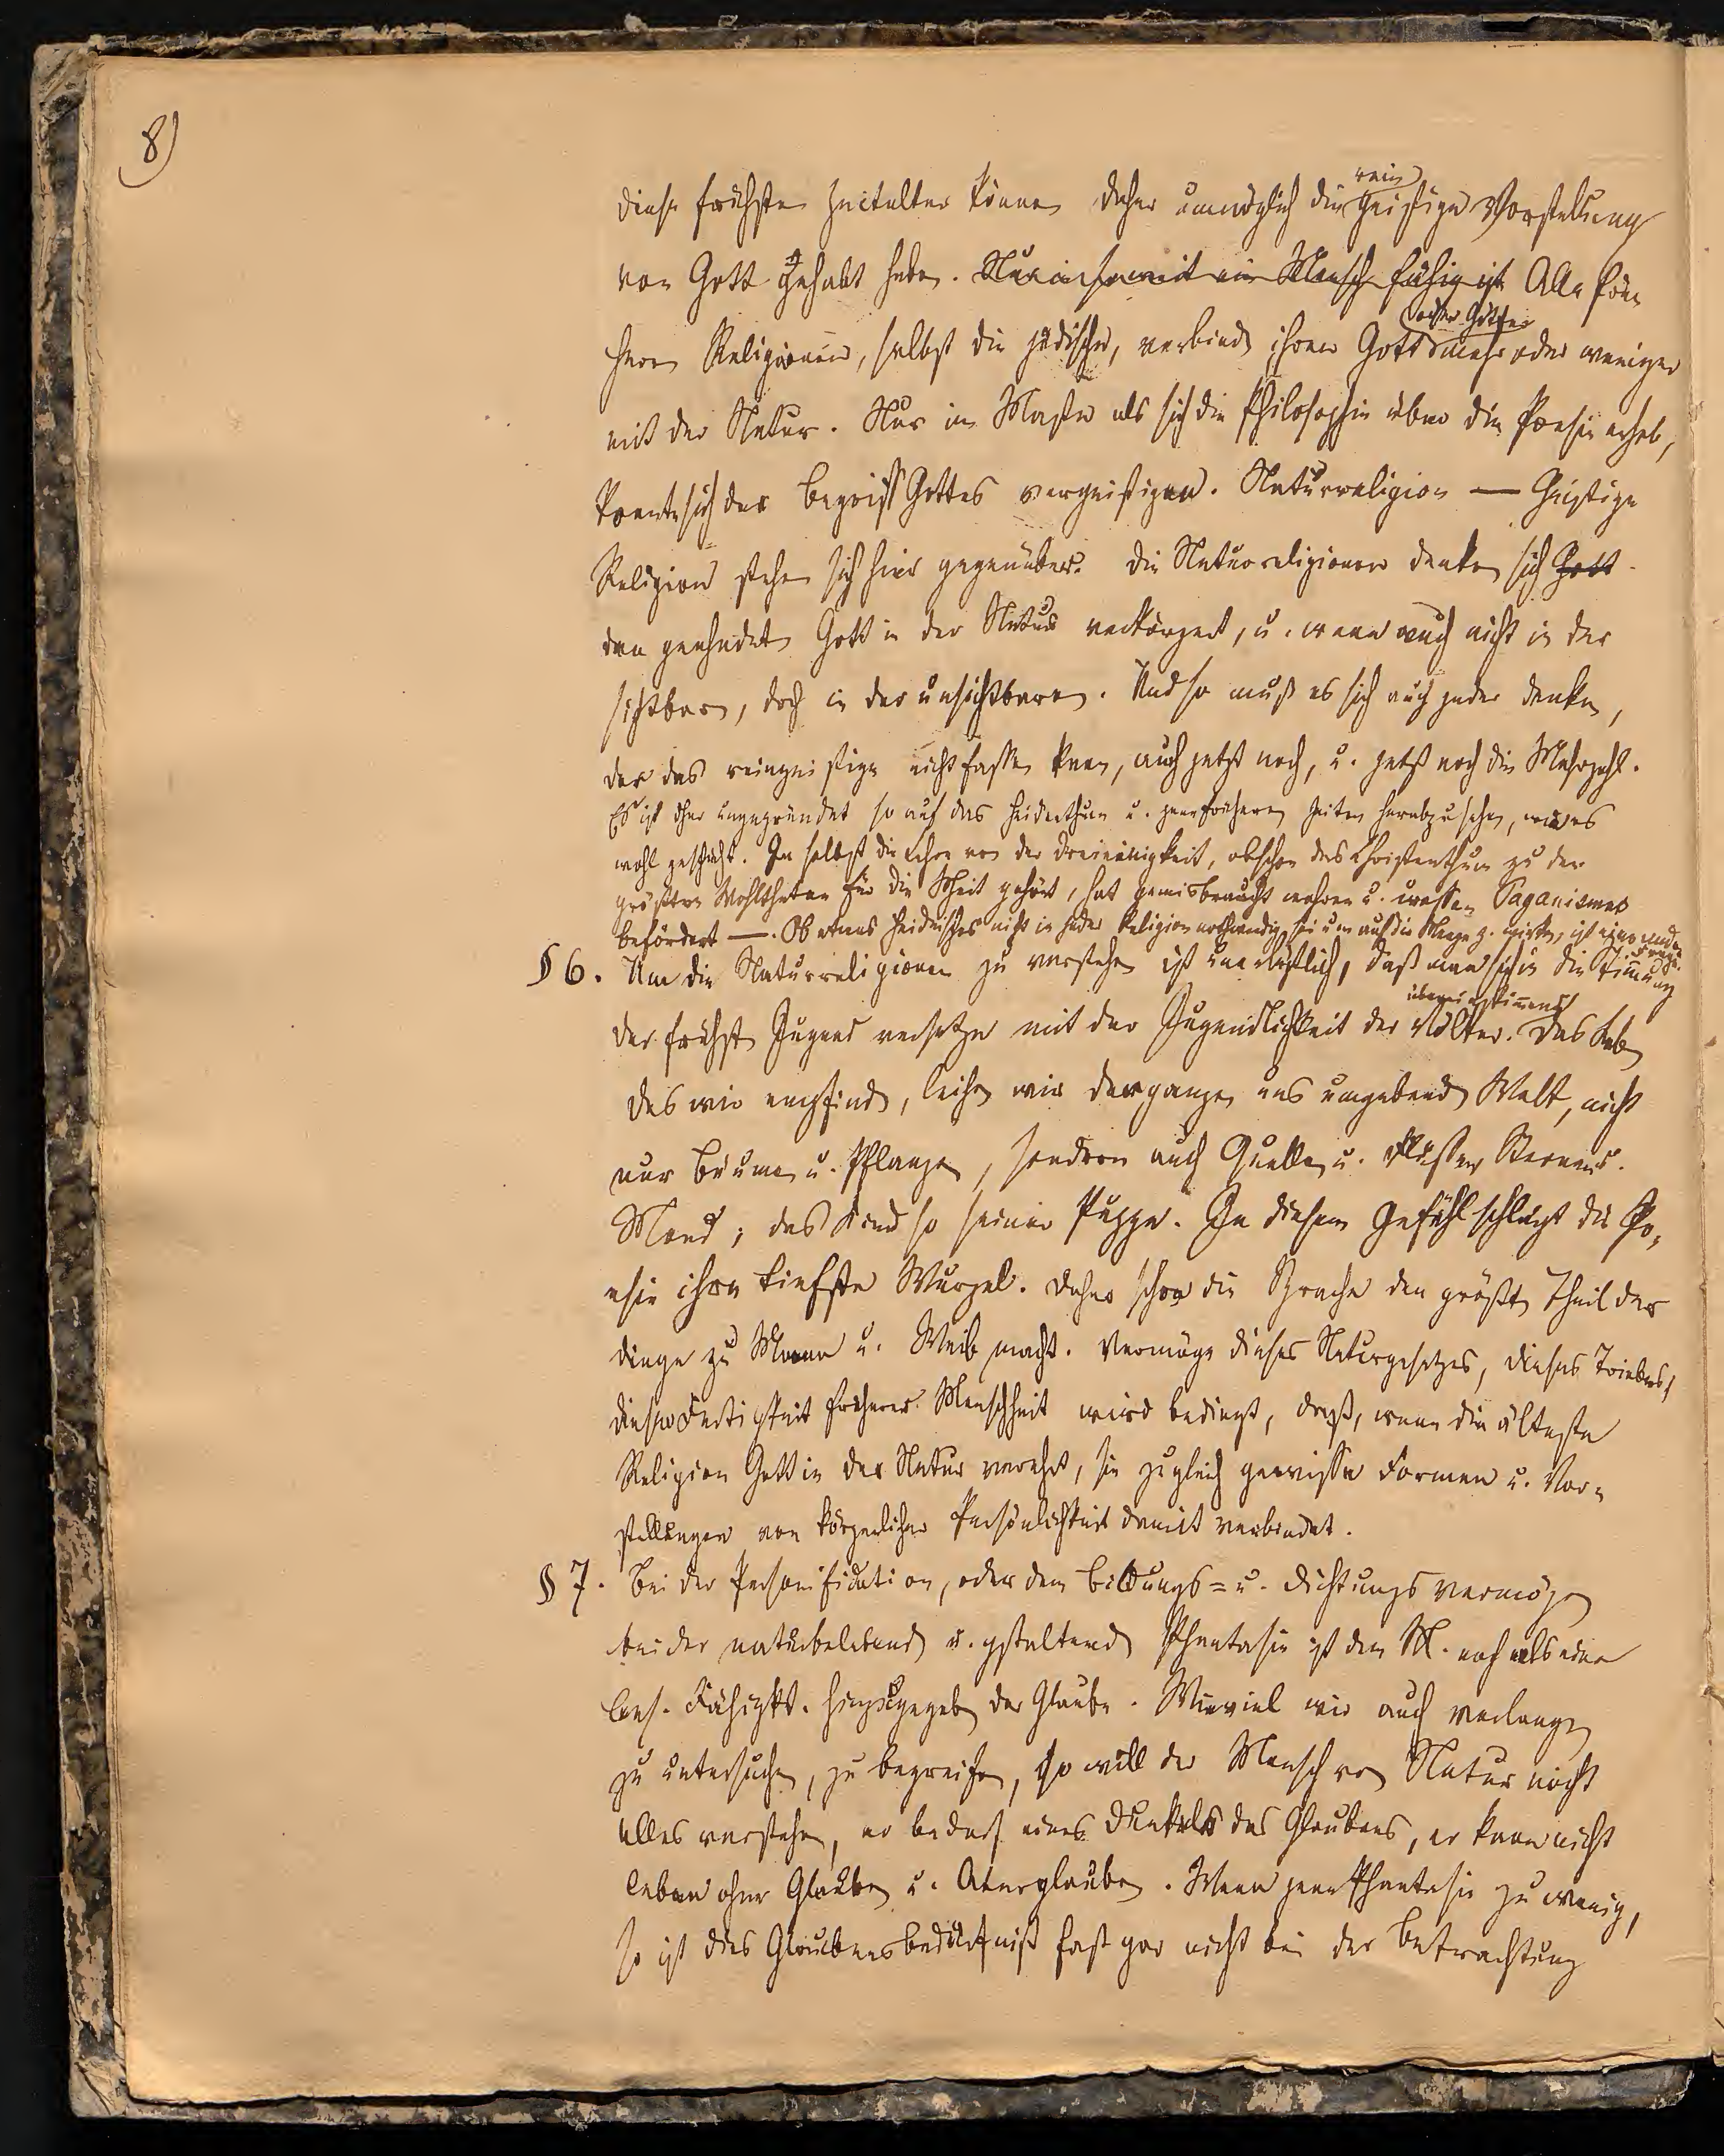 8)
rein
diese frühsten Zeitalter können daher unmöglich die geistige Vorstellung
von Gott gehabt haben. Nur in soweit ein Mensch fähig ist Alle frü-
oder Götter
hern Religionen, selbst die jüdische, verbinden ihren Gott mehr oder weniger
mit der Natur. Nur in Maße als sich die Philosophie über die Poesie erhob,
konnte sich der Begriff Gottes vergeistigen. Naturreligion — Geistige
Religion stehen sich hier gegenüber. Die Naturreligionen denken sich Gott
den geahndeten Gott in der Natur verkörpert, u. wenn auch nicht in der
sichtbaren, doch in der unsichtbaren. Und so muß es sich auch jeder denken,
der das reingeistige nicht fassen kann, auch jetzt noch, u. jetzt noch die Mehrzahl.
Es ist daher ungegründet so auf das Heidenthum u. jene frühern Zeiten herabzusehen, wie es
wohl geschieht. Ja selbst die Lehre von der Dreieinigkeit, obschon das Christenthum zu den
größten Wohlthaten für die Mheit gehört, hat gemisbraucht wahren u. crassen Paganismus
befördert —. Ob etwas Heidnisches nicht in jeder Religion nothwendig sei um auf die Menge z. wirken, ist eine andre
Frage.
§ 6. Um die Naturreligionen zu verstehen ist unerläßlich, daß man sich in die Stimmung
übereinstimmend
der frühsten Jugend versetze mit der Jugendlichkeit der Völker. Das Leben
das wir empfinden, leihen wir der ganzen uns umgebenden Welt, nicht
nur Bäumen u. Pflanzen, sondern auch Quellen u. Flüssen, Sternen u.
Mond; das Kind so seiner Puppe. In diesem Gefühl schlägt die Po-
esie ihre tiefste Wurzel. Daher schon die Sprache den größten Theil der
Dinge zu Mann u. Weib macht. Vermöge dieses Naturgesetzes, dieses Triebes,
dieser Fertigkeit früherer Menschheit wird bedingt, daß, wenn die älteste
Religion Gott in der Natur verehrt, sie zugleich gewisse Formen u. Vor-
stellungen von körperlicher Persönlichkeit damit verbindet.
§ 7. Bei der Personification, oder dem Bildungs- u. Dichtungsvermögen
bei der naturbelebenden u. gstaltenden Phantasie ist dem M. noch als eine
bes. Fähigkt. hinzugegeben der Glaube. Wieviel wir auch verlangen
zu untersuchen, zu begreifen, so will der Mensch von Natur nicht
alles verstehen, er bedarf eines Dunkels des Glaubens, er kann nicht
leben ohne Glauben u. Aberglauben. Wenn jene Phantasie zu wenig,
so ist dies Glaubensbedürfniß fast gar nicht bei der Betrachtung